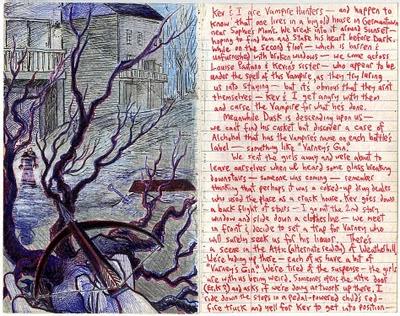 Kev & I are Vampire Hunters — and happen to
know that one lives in a big old house in Germantown
near Sophie's Mom's. We break into it around sunset —
hoping to find him and stake his heart before Dark.
While on the second floor — which is barren &
unfurnished with broken windows — we come across
Louise Pantano & Kevin's sister — who appear to be
under the spell of this Vampire, as they try luring
us into staying — but it's obvious that they aren't
themselves — Kev & I get angry with them
and curse the Vampire for what he's done.
Meanwhile Dusk is descending upon us —
we can't find his casket but discover a case of
Alchohol that has the Vampire's name on each bottle's
label — something like "Varney's Gin."
We sent the girls away and we're about to
leave ourselves when we heard some glass breaking
downstairs — someone was coming — remember
thinking that perhaps it was a coked-up drug dealer
who used the place as a crack house. Kev goes down
a back flight of stairs — I go out the 2nd story
window and slide down a clothes line — we meet
in front & decide to set a trap for Varney who
will surely seek us for his liquor. There's
a scene in the Attic (alternate reality) of Weatherhill
We're hiding up there — each of us have a bot. of
"Varney's Gin." We're tired of the suspense — the girls
are with us being weird. Someone opens the attic door
and asks if we're doing artwork up there, I
ride down the steps in a pedal-powered child's red-
fire truck and yell for Kev to get into position —